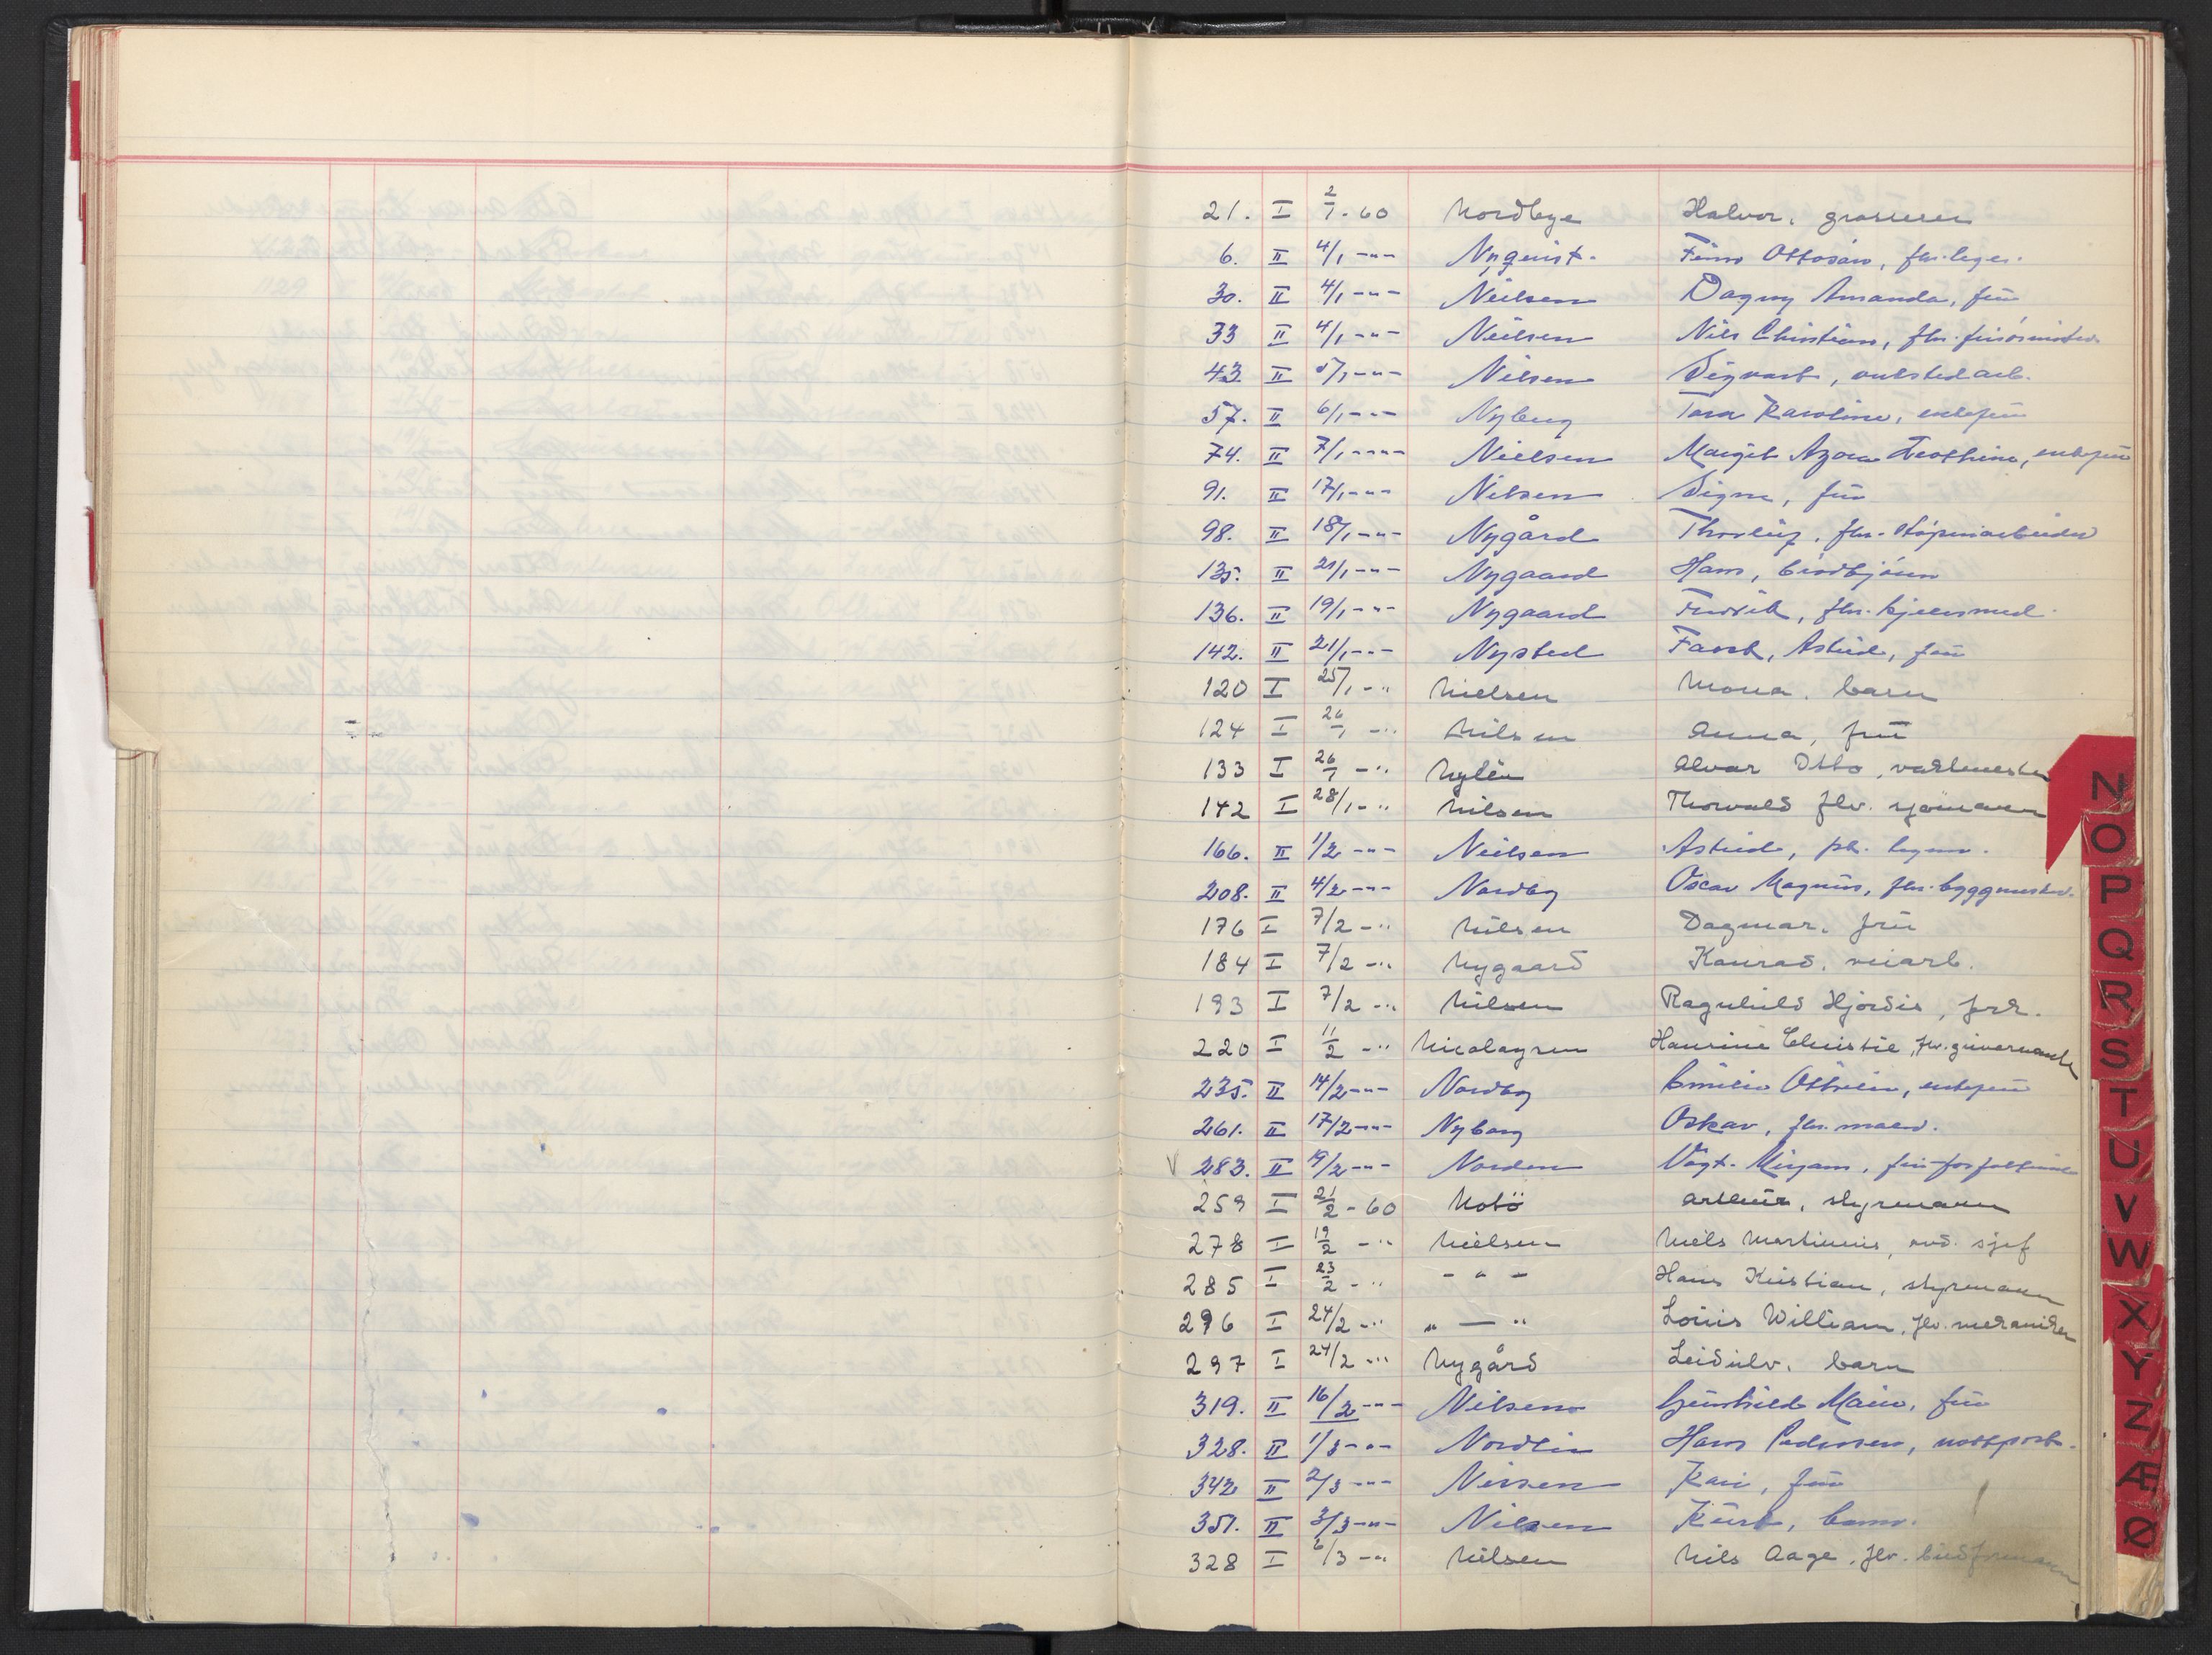 21. I 2/1-60 Nordbye Halvor, grosserer
6. II 4/1 -"- Nyquist. Finn Ottosøn, fhv. lege.
30. II 4/1 -"- Nielsen Dagny Amanda, frū
33 II 4/1 -"- Nielsen Nils Christian, fhv.
43 II 5/1 -"- Nilsen Sigvart,
57. II 6/1 -"- Nyberg Tora Karoline, enkefrū
74. II 7/1 -"- Nielsen Margit Azora, enkefrū
91. II 17/1 -"- Nilsen Signe, frū
98. II 18/1 -"- Nygård Thorleif, fhv. støperiarbeider
135. II 21/1 -"- Nygaard Hans,
136. II 19/1 -"- Nygaard Fredrik, fhv. kjelesmed.
142. II 21/1 -"- Nysted Astrid, frū
120 I 25/1 -" Nielsen Mona. barn
124 I 26/1 -" Nilsen Anna, frū
133 I 26/1 -" Nylén Alvar Otto, vaktmester
142 I 28/1 -" Nilsen Thorvald fhv. sjømann
166. II 1/2 -"- Neilsen Astrid,
208. II 4/2 -"- Nordby Oscar Magnūs, fhv. byggmester.
176 I 7/2 -" Nilsen Dagmar. frū
184 I 7/2 -" Nygaard Konrad. veiarb.
193 I 7/2 -" Nilsen Ragnhild Hjørdis, frk.
220 I 11/2 -" Nicolaysen Hansine Christie, fhv. gūvernante
235. II 14/2 -"- Nordby Emilie, enkefrū
261. II 17/2 -"- Nyborg Oskar, fhv. maler.
V 283. II 19/2 -"- Norden Vogt. Mirjam, forfatterinne
259 I 21/2 - 60 Notö Arthūr, styrmann
278 I 19/2 -" Nielsen Niels Martinius, avd. sjef
285 I 23/2 -" - " - Hans Kristian, styrmann
296 I 24/2 -" " — " Loūis William, fhv. mekaniker
297 I 24/2 -" Nygård Leidūlv. barn
319. II 16/2 -"- Nilsen Gūnhild Marie, frū
328. II 1/3 -"- Nordlie Hans Pedersen, nattport.
342 II 2/3 -"- Nissen Kari, frū
351. II 3/3 -"- Nilsen Kūrt, barn.
328 I 6/3 -" Nilsen Nils Aage, fhv. būdformann
N
O
P
Q
R
S
T
U
V
W
X
Y
Z
Æ
Ø